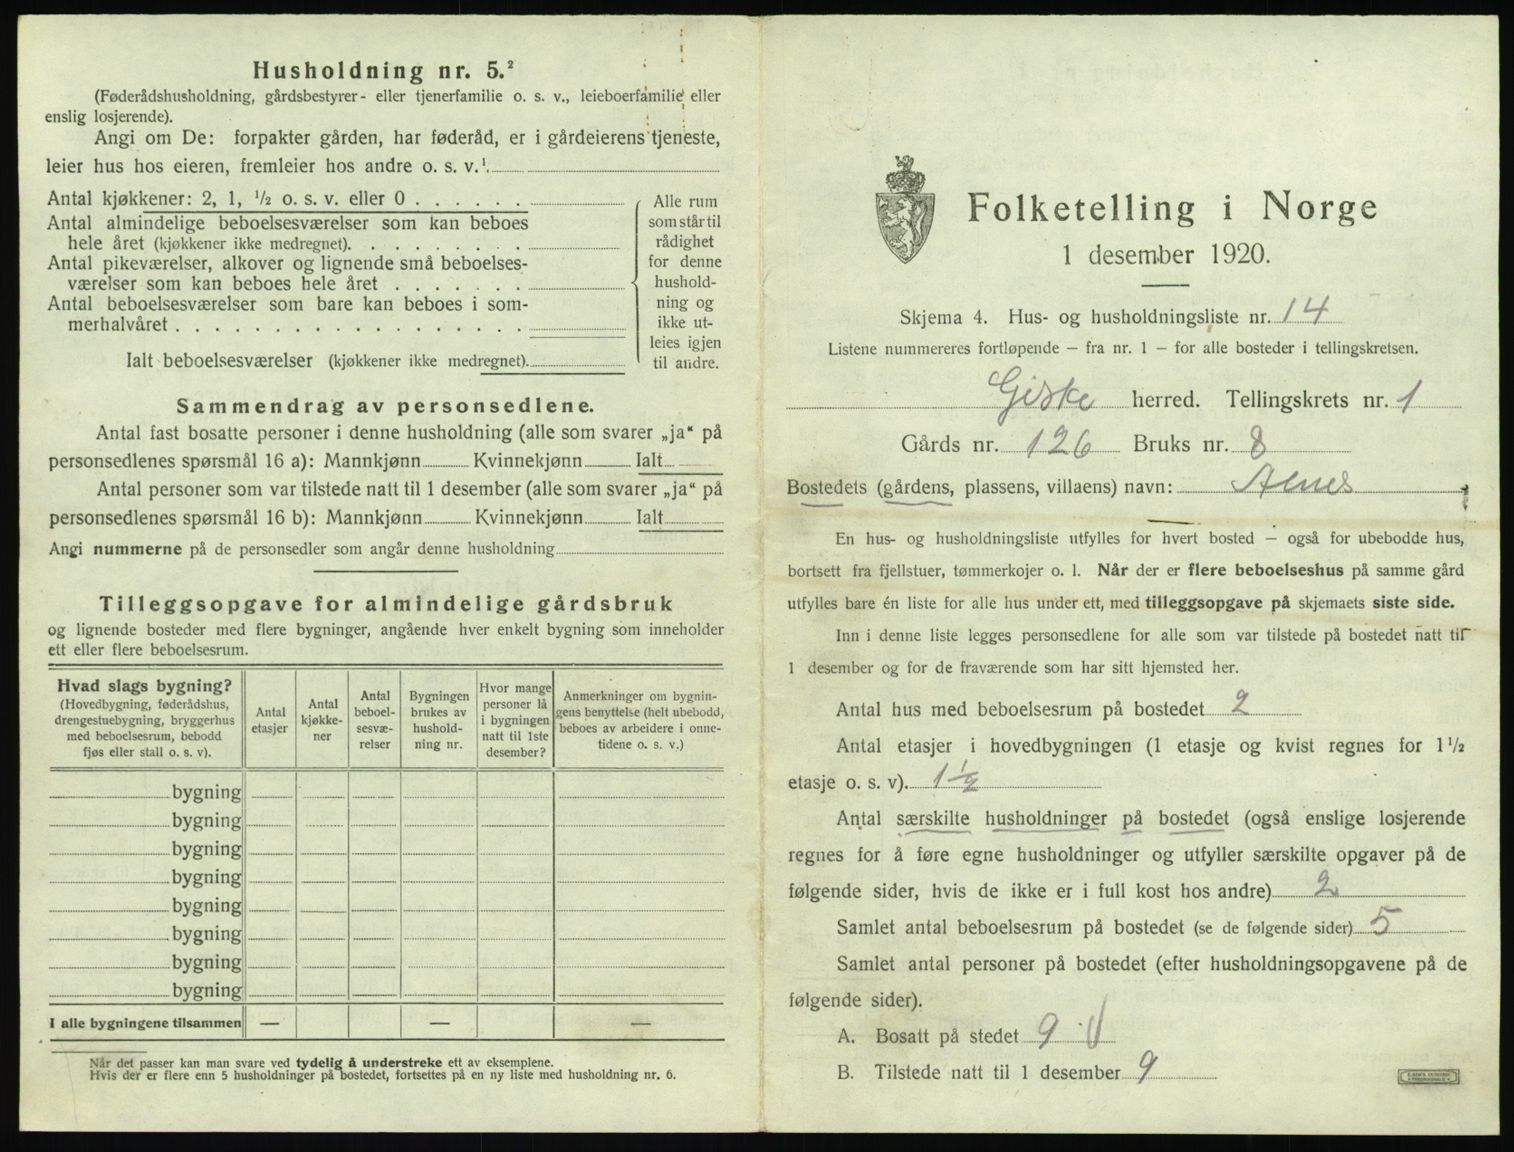 Husholdning nr. 5.²
(Føderådshusholdning, gårdsbestyrer- eller tjenerfamilie o. s. v., leieboerfamilie eller
enslig losjerende).
Angi om De: forpakter gården, har føderåd, er i gårdeierens tjeneste,
leier hus hos eieren, fremleier hos andre o. s. v.¹
Antal kjøkkener: 2, 1, ½ o. s. v. eller 0
Antal almindelige beboelsesværelser som kan beboes
hele året (kjøkkener ikke medregnet).
Antal pikeværelser, alkover og lignende små beboelses-
værelser som kan beboes hele året
Antal beboelsesværelser som bare kan beboes i som-
merhalvåret
Ialt beboelsesværelser (kjøkkener ikke medregnet).
Alle rum
som står til
rådighet
for denne
hushold-
ning og
ikke ut-
leies igjen
til andre.
Sammendrag av personsedlene.
Antal fast bosatte personer i denne husholdning (alle som svarer „ja“ på
personsedlenes spørsmål 16 a): Mannkjønn Kvinnekjønn Ialt
Antal personer som var tilstede natt til 1 desember (alle som svarer „ja“ på
personsedlenes spørsmål 16 b): Mannkjønn Kvinnekjønn Ialt
Angi nummerne på de personsedler som angår denne husholdning
Tilleggsopgave for almindelige gårdsbruk
og lignende bosteder med flere bygninger, angående hver enkelt bygning som inneholder
ett eller flere beboelsesrum.
Hvad slags bygning?
(Hovedbygning, føderådshus,
drengestuebygning, bryggerhus
med beboelsesrum, bebodd
fjøs eller stall o. s. v).
Antal
etasjer
Antal
kjøkke-
ner
Antal
beboel-
sesvæ-
relser
Bygningen
brukes av
hushold-
ning nr.
Hvor mange
personer lå
i bygningen
natt til 1ste
desember?
Anmerkninger om bygnin-
gens benyttelse (helt ubebodd,
beboes av arbeidere i onne-
tidene o. s. v.)
bygning
bygning
bygning
bygning
bygning
bygning
bygning
bygning
I alle bygningene tilsammen — — —
Når det passer kan man svare ved tydelig å understreke ett av eksemplene.
Hvis der er flere enn 5 husholdninger på bostedet, fortsettes på en ny liste med husholdning nr. 6.
Folketelling i Norge
1 desember 1920.
Skjema 4. Hus- og husholdningsliste nr. 14
Listene nummereres fortløpende — fra nr. 1 — for alle bosteder i tellingskretsen.
Giske herred. Tellingskrets nr. 1
Gårds nr. 126 Bruks nr. 8
Bostedets (gårdens, plassens, villaens) navn: Alnes
En hus- og husholdningsliste utfylles for hvert bosted — også for ubebodde hus,
bortsett fra fjellstuer, tømmerkojer o. l. Når der er flere beboelseshus på samme gård
utfylles bare én liste for alle hus under ett, med tilleggsopgave på skjemaets siste side.
Inn i denne liste legges personsedlene for alle som var tilstede på bostedet natt til
1 desember og for de fraværende som har sitt hjemsted her.
Antal hus med beboelsesrum på bostedet 2
Antal etasjer i hovedbygningen (1 etasje og kvist regnes for 1½
etasje o. s. v). 1½
Antal særskilte husholdninger på bostedet (også enslige losjerende
regnes for å føre egne husholdninger og utfyller særskilte opgaver på de
følgende sider, hvis de ikke er i full kost hos andre) 2
Samlet antal beboelsesrum på bostedet (se de følgende sider) 5
Samlet antal personer på bostedet (efter husholdningsopgavene på de
følgende sider).
A. Bosatt på stedet 9
B. Tilstede natt til 1 desember 9